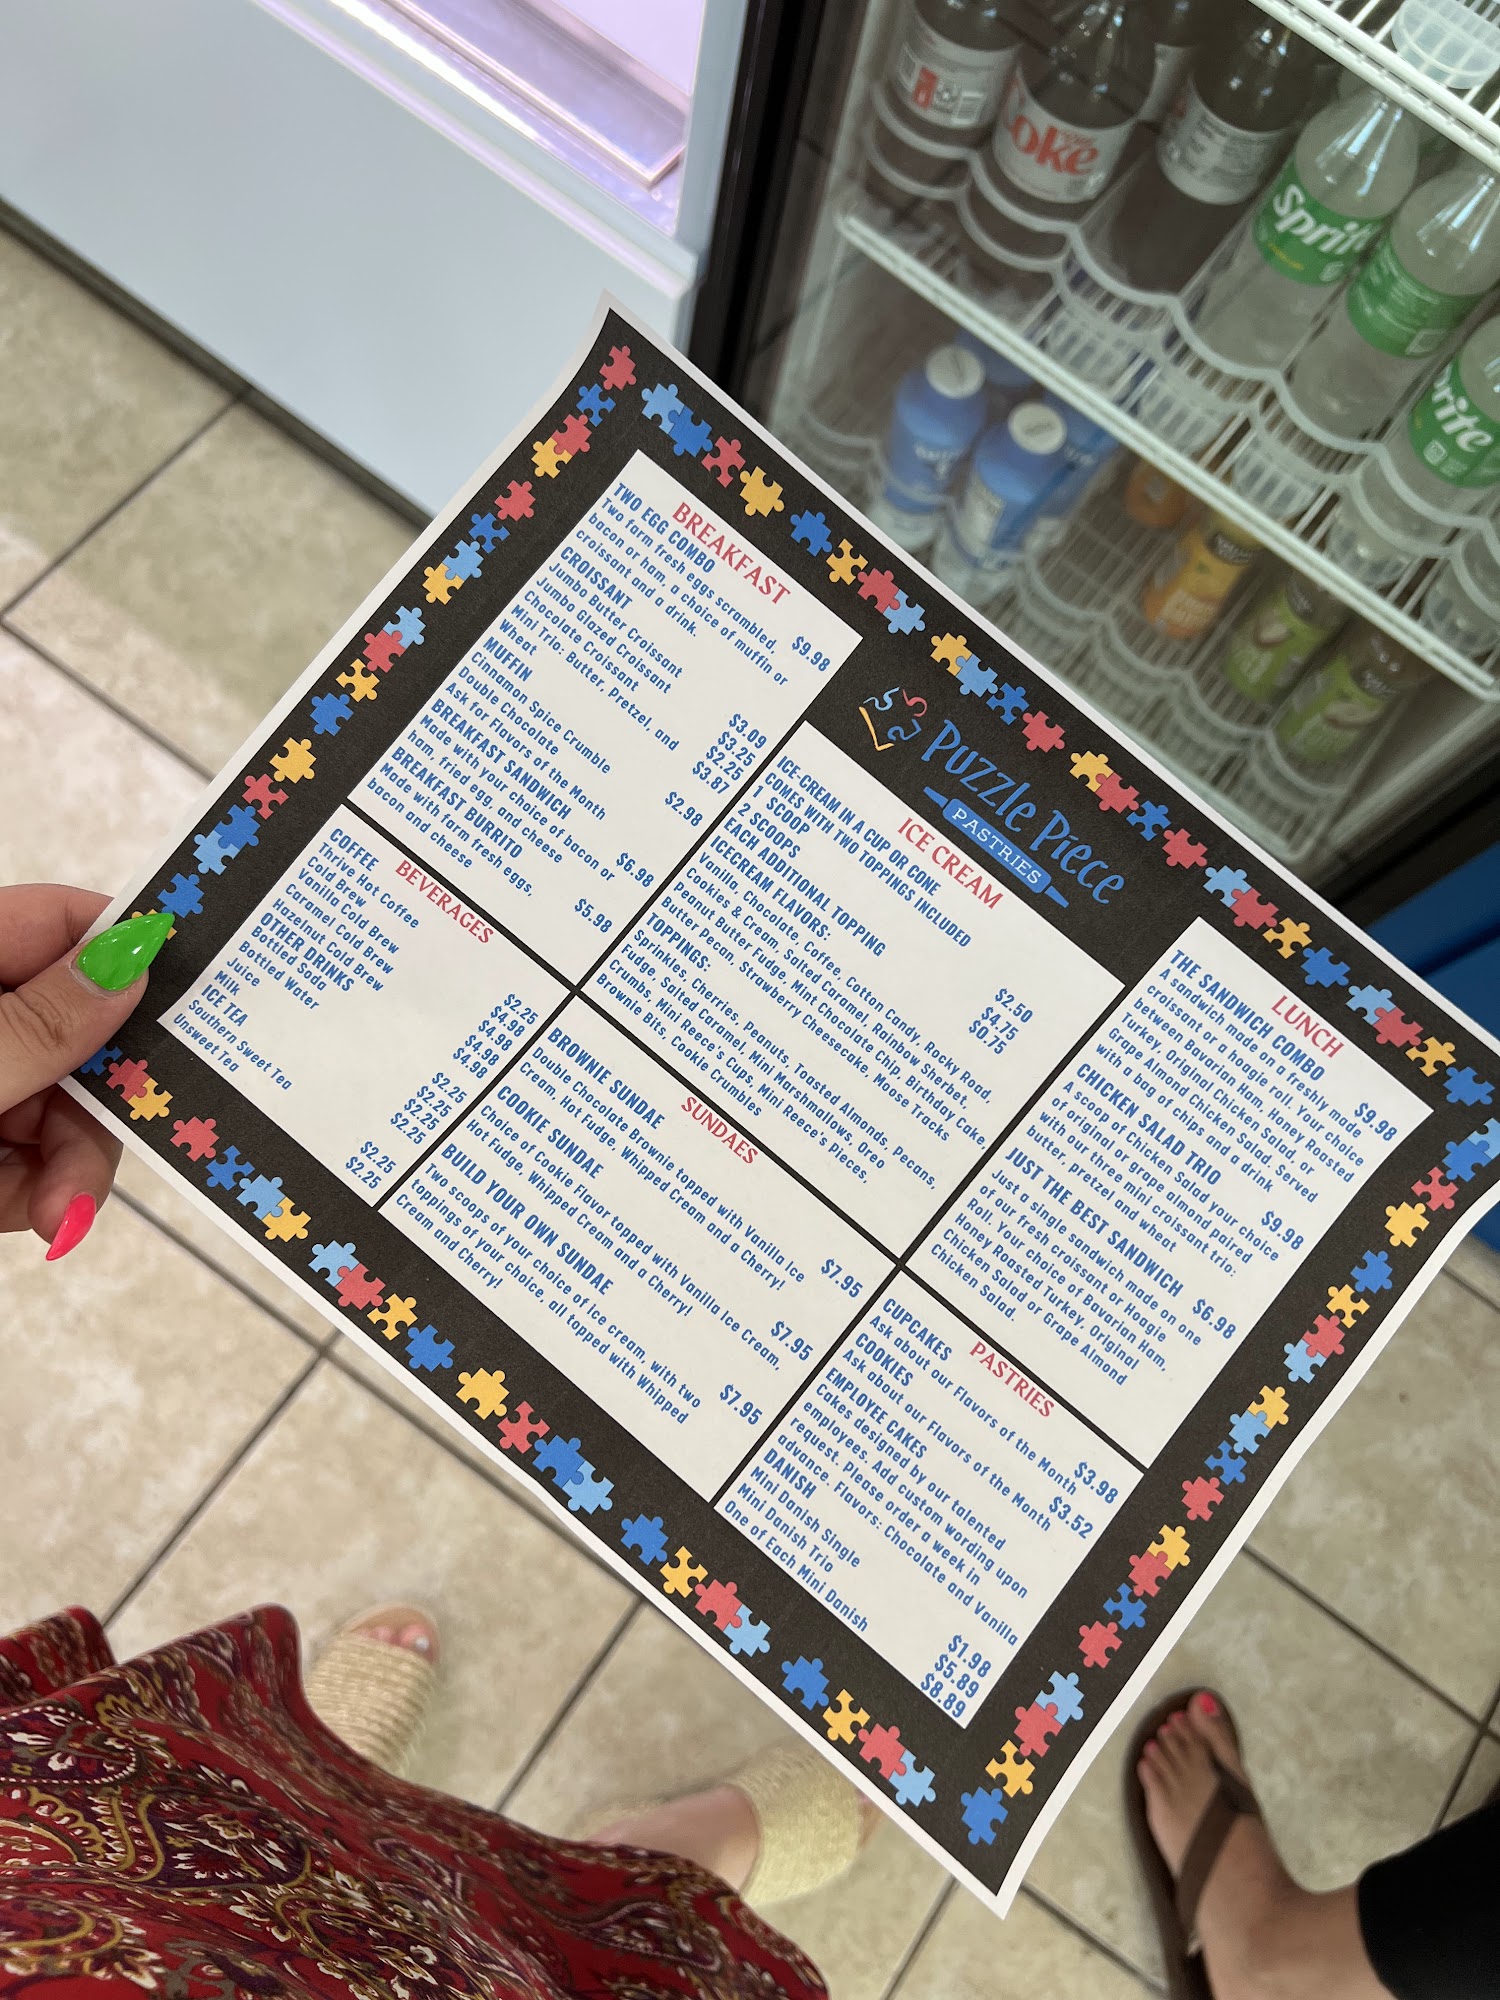 BREAKFAST
TWO EGG COMBO
$9.98
Two farm fresh eggs scrambled,
bacon or ham, a choice of muffin or
croissant and a drink.
CROISSANT
Jumbo Butter Croissant
$3.09
Jumbo Glazed Croissant
$3.25
Chocolate Croissant
$2.25
Mini Trio: Butter, Pretzel, and
$3.87
Wheat
MUFFIN
$2.98
Cinnamon Spice Crumble
Double Chocolate
Ask for Flavors of the Month
BREAKFAST SANDWICH
$6.98
Made with your choice of bacon or
ham, fried egg, and cheese
BREAKFAST BURRITO
$5.98
Made with farm fresh eggs,
bacon and cheese
BEVERAGES
COFFEE
Thrive Hot Coffee
$2.25
Cold Brew
$4.98
Vanilla Cold Brew
$4.98
Caramel Cold Brew
$4.98
Hazelnut Cold Brew
$4.98
OTHER DRINKS
Bottled Soda
$2.25
Bottled Water
$2.25
Juice
$2.25
Milk
$2.25
ICE TEA
Southern Sweet Tea
$2.25
Unsweet Tea
$2.25
$2.25
Puzzle Piece
PASTRIES
ICE CREAM
ICE-CREAM IN A CUP OR CONE
COMES WITH TWO TOPPINGS INCLUDED
1 SCOOP
$2.50
2 SCOOPS
$4.75
EACH ADDITIONAL TOPPING
$0.75
ICECREAM FLAVORS:
Vanilla, Chocolate, Coffee, Cotton Candy, Rocky Road,
Cookies & Cream, Salted Caramel, Rainbow Sherbet,
Peanut Butter Fudge, Mint Chocolate Chip, Birthday Cake,
Butter Pecan, Strawberry Cheesecake, Moose Tracks
TOPPINGS:
Sprinkles, Cherries, Peanuts, Toasted Almonds, Pecans,
Fudge, Salted Caramel, Mini Marshmallows, Oreo
Crumbs, Mini Reece's Cups, Mini Reece's Pieces,
Brownie Bits, Cookie Crumbles
SUNDAES
BROWNIE SUNDAE
$7.95
Double Chocolate Brownie topped with Vanilla Ice
Cream, Hot Fudge, Whipped Cream and a Cherry!
COOKIE SUNDAE
$7.95
Choice of Cookie Flavor topped with Vanilla Ice Cream,
Hot Fudge, Whipped Cream and a Cherry!
BUILD YOUR OWN SUNDAE
$7.95
Two scoops of your choice of ice cream, with two
toppings of your choice, all topped with Whipped
Cream and Cherry!
LUNCH
THE SANDWICH COMBO
$9.98
A sandwich made on a freshly made
croissant or a hoagie roll. Your choice
between Bavarian Ham, Honey Roasted
Turkey, Original Chicken Salad, or
Grape Almond Chicken Salad. Served
with a bag of chips and a drink
CHICKEN SALAD TRIO
$9.98
A scoop of Chicken Salad your choice
of original or grape almond paired
with our three mini croissant trio:
butter, pretzel and wheat
JUST THE BEST SANDWICH
$6.98
Just a single sandwich made on one
of our fresh croissant or Hoagie
Roll. Your choice of Bavarian Ham,
Honey Roasted Turkey, Original
Chicken Salad or Grape Almond
Chicken Salad.
PASTRIES
CUPCAKES
$3.98
Ask about our Flavors of the Month
COOKIES
$3.52
Ask about our Flavors of the Month
EMPLOYEE CAKES
Cakes designed by our talented
employees. Add custom wording upon
request. Please order a week in
advance. Flavors: Chocolate and Vanilla
DANISH
Mini Danish Single
$1.98
Mini Danish Trio
$5.89
One of Each Mini Danish
$8.89
Coke
Sprite
Sprite